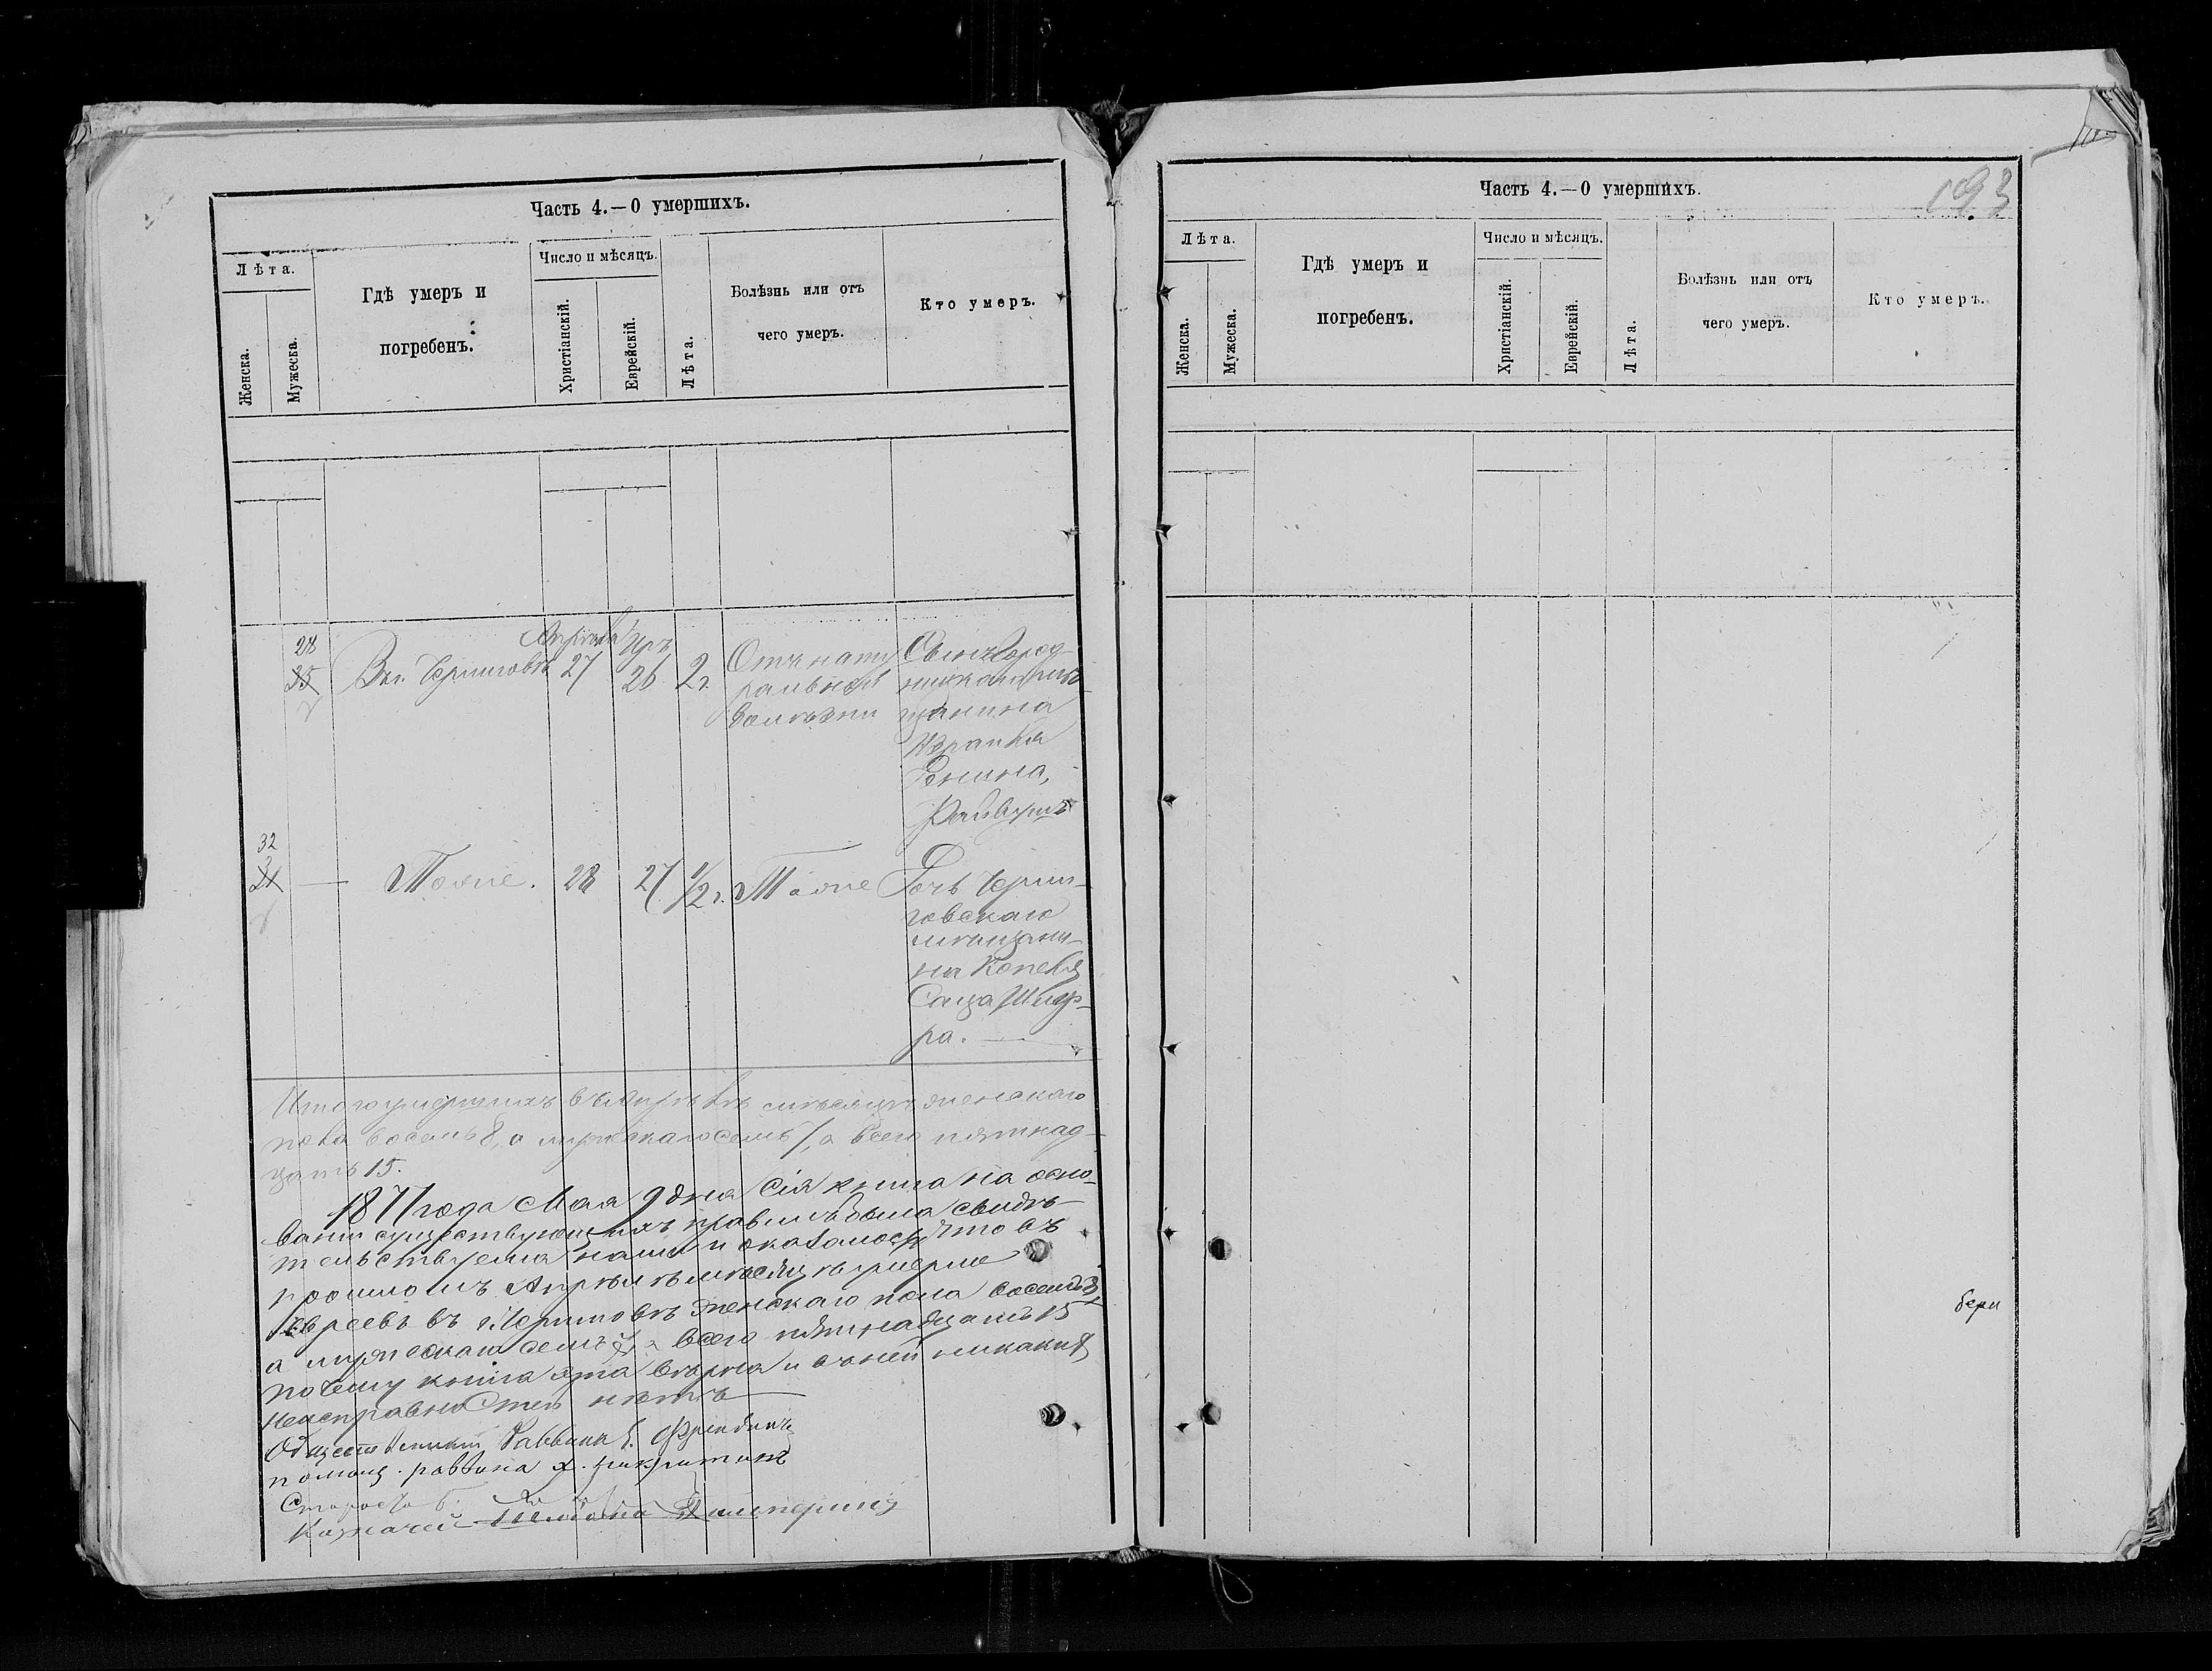 Часть 4.—О умершихъ.
Лѣта.
Женска.
Мужеска.
Гдѣ умеръ и
погребенъ.
Число и мѣсяцъ.
Христіанскій.
Еврейскій.
Лѣта.
Болѣзнь или отъ
чего умеръ.
Кто умеръ.
28
25
Въ г. Черниговѣ
Апрѣля
27
Іяръ
26
2 г.
Отъ нату
ральной
болѣзни
щанина
Израиля
32
31
Тоже.
28
27
1/2 г.
Тоже
Дочь Черни-
говскаго
мѣщани-
на Копеля
ра.
Итого умершихъ въ Апрѣлѣ мѣсяцѣ женскаго
пола восемь 8, а мужескаго семь 7, а всего пятнад-
цать 15.
1877 года Мая 9 дня сія книга на осно-
ваніи существующихъ правилъ была свидѣ-
тельствуема нами и оказалось что въ
прошломъ Апрѣлѣ мѣсяцѣ умерло
евреевъ въ г. Черниговѣ женскаго пола восемь 8,
а мужескаго семь 7, а всего пятнадцать 15
почему книга эта вѣрна и въ ней никакихъ
неисправностей нѣтъ
Общественный Раввинъ
помощ. раввина
Староста
Казначей
Часть 4.—О умершихъ.
193
Лѣта.
Женска.
Мужеска.
Гдѣ умеръ и
погребенъ.
Число и мѣсяцъ.
Христіанскій.
Еврейскій.
Лѣта.
Болѣзнь или отъ
чего умеръ.
Кто умеръ.